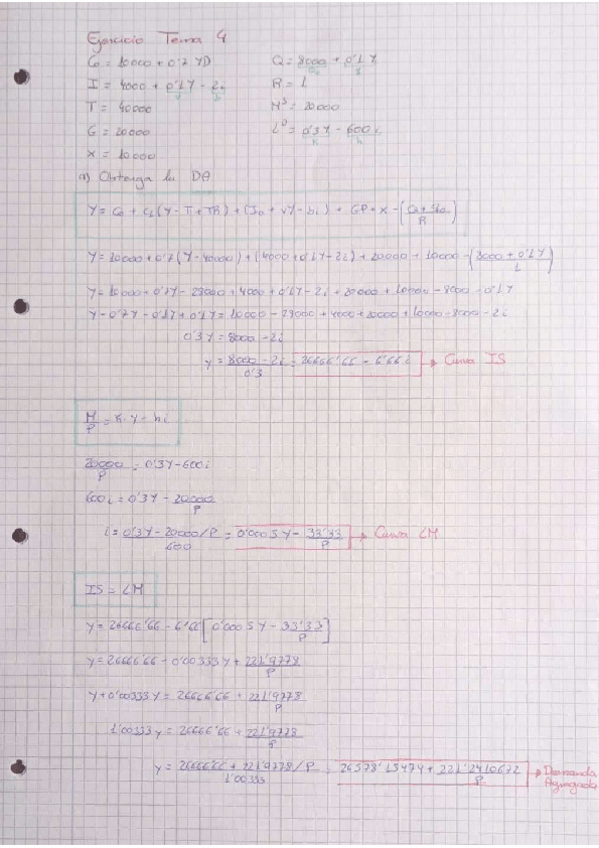 Ejercicio Tema 4
C = 10000 + 0'7 YD
Q = 8000 + 0'1 Y
I = 4000 + 0'1Y - 2i
R = 1
T = 40000
M^S = 20000
G = 20000
L^D = 0'3Y - 600i
X = 10000
a) Obtenga la DA
Y = C0 + c1(Y - T + TR) + (I0 + vY - bi) + GP + X -
Y = 10000 + 0'7(Y - 40000) + (4000 + 0'1Y - 2i) + 20000 + 10000 - (8000 + 0'1Y / 1)
Y = 10000 + 0'7Y - 28000 + 4000 + 0'1Y - 2i + 20000 + 10000 - 8000 - 0'1Y
Y - 0'7Y - 0'1Y + 0'1Y = 10000 - 28000 + 4000 + 20000 + 10000 - 8000 - 2i
0'3Y = 8000 - 2i
Y = 8000 - 2i / 0'3 = 26666'66 - 6'66i → Curva IS
M/P = k·Y - hi
20000/P = 0'3Y - 600i
600i = 0'3Y - 20000/P
i = 0'3Y - 20000/P / 600 = 0'0005Y - 33'33/P → Curva LM
IS = LM
Y = 26666'66 - 6'66[0'0005Y - 33'33/P]
Y = 26666'66 - 0'00333Y + 221'9778/P
Y + 0'00333Y = 26666'66 + 221'9778/P
1'00333Y = 26666'66 + 221'9778/P
Y = 26666'66 + 221'9778/P / 1'00333 = 26578'15474 + 221'2410672/P → Demanda Agregada